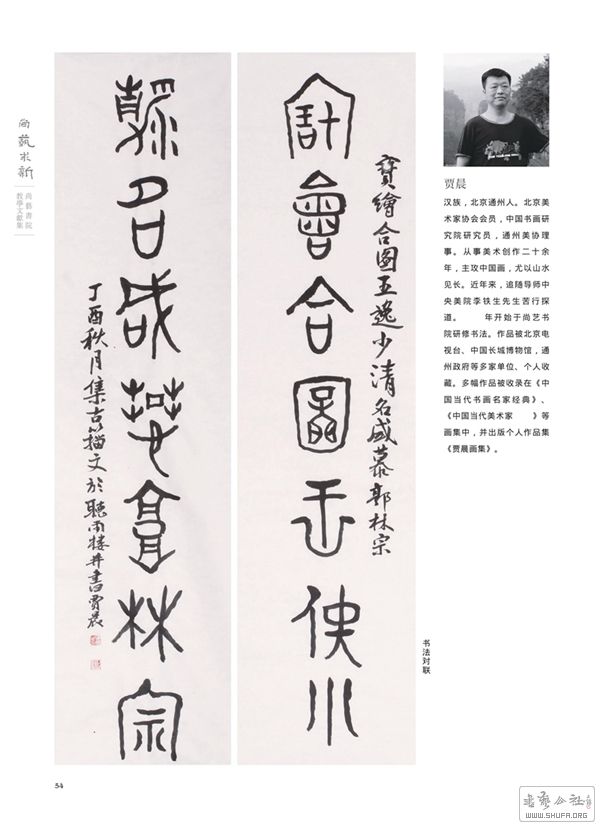 尚藝求新
尚藝書院
教學文獻集
寶繪合圖王逸少
寶繪合圖王逸少清名盛慕郭林宗
名盛慕郭林宗
丁酉秋月集古籀文於聽雨樓并書賈晨
贾晨
汉族，北京通州人。北京美
术家协会会员，中国书画研
究院研究员，通州美协理
事。从事美术创作二十余
年，主攻中国画，尤以山水
见长。近年来，追随导师中
央美院李铁生先生苦行探
道。 年开始于尚艺书
院研修书法。作品被北京电
视台、中国长城博物馆，通
州政府等多家单位、个人收
藏。多幅作品被收录在《中
国当代书画名家经典》、
《中国当代美术家 》等
画集中，并出版个人作品集
《贾晨画集》。
书法对联
54
書藝公社
WWW.SHUFA.ORG